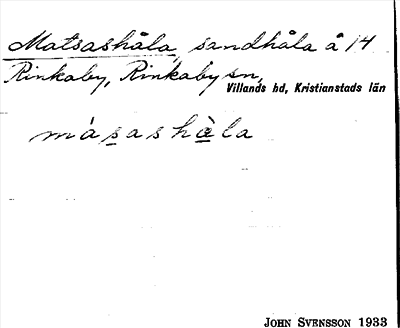 Matsashåla, sandhåla å 14
Rinkaby, Rinkaby sn,
Villands hd, Kristianstads län
másashàla
JOHN SVENSSON 1933